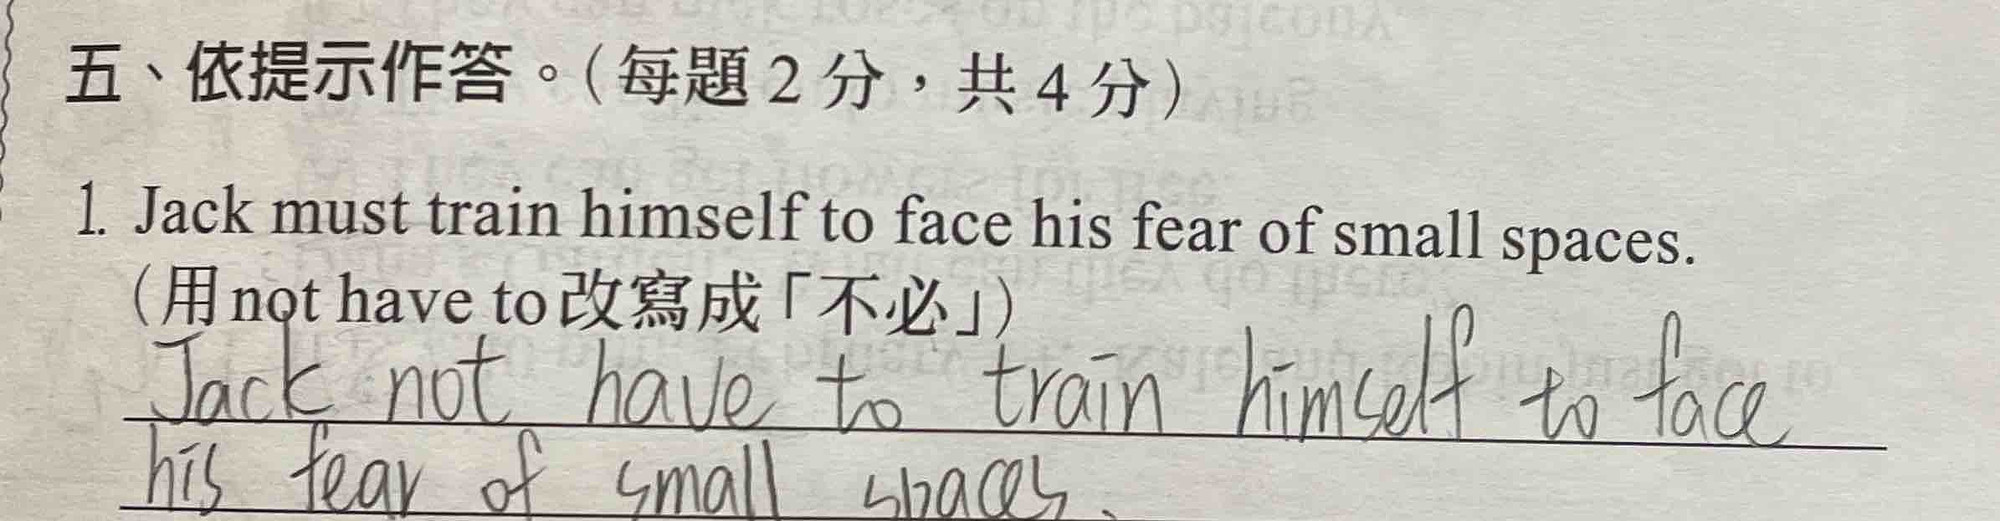 五、依提示作答。(每題 2 分，共 4 分)
1. Jack must train himself to face his fear of small spaces.
(用 not have to 改寫成「不必」)
Jack not have to train himself to face
his fear of small spaces.